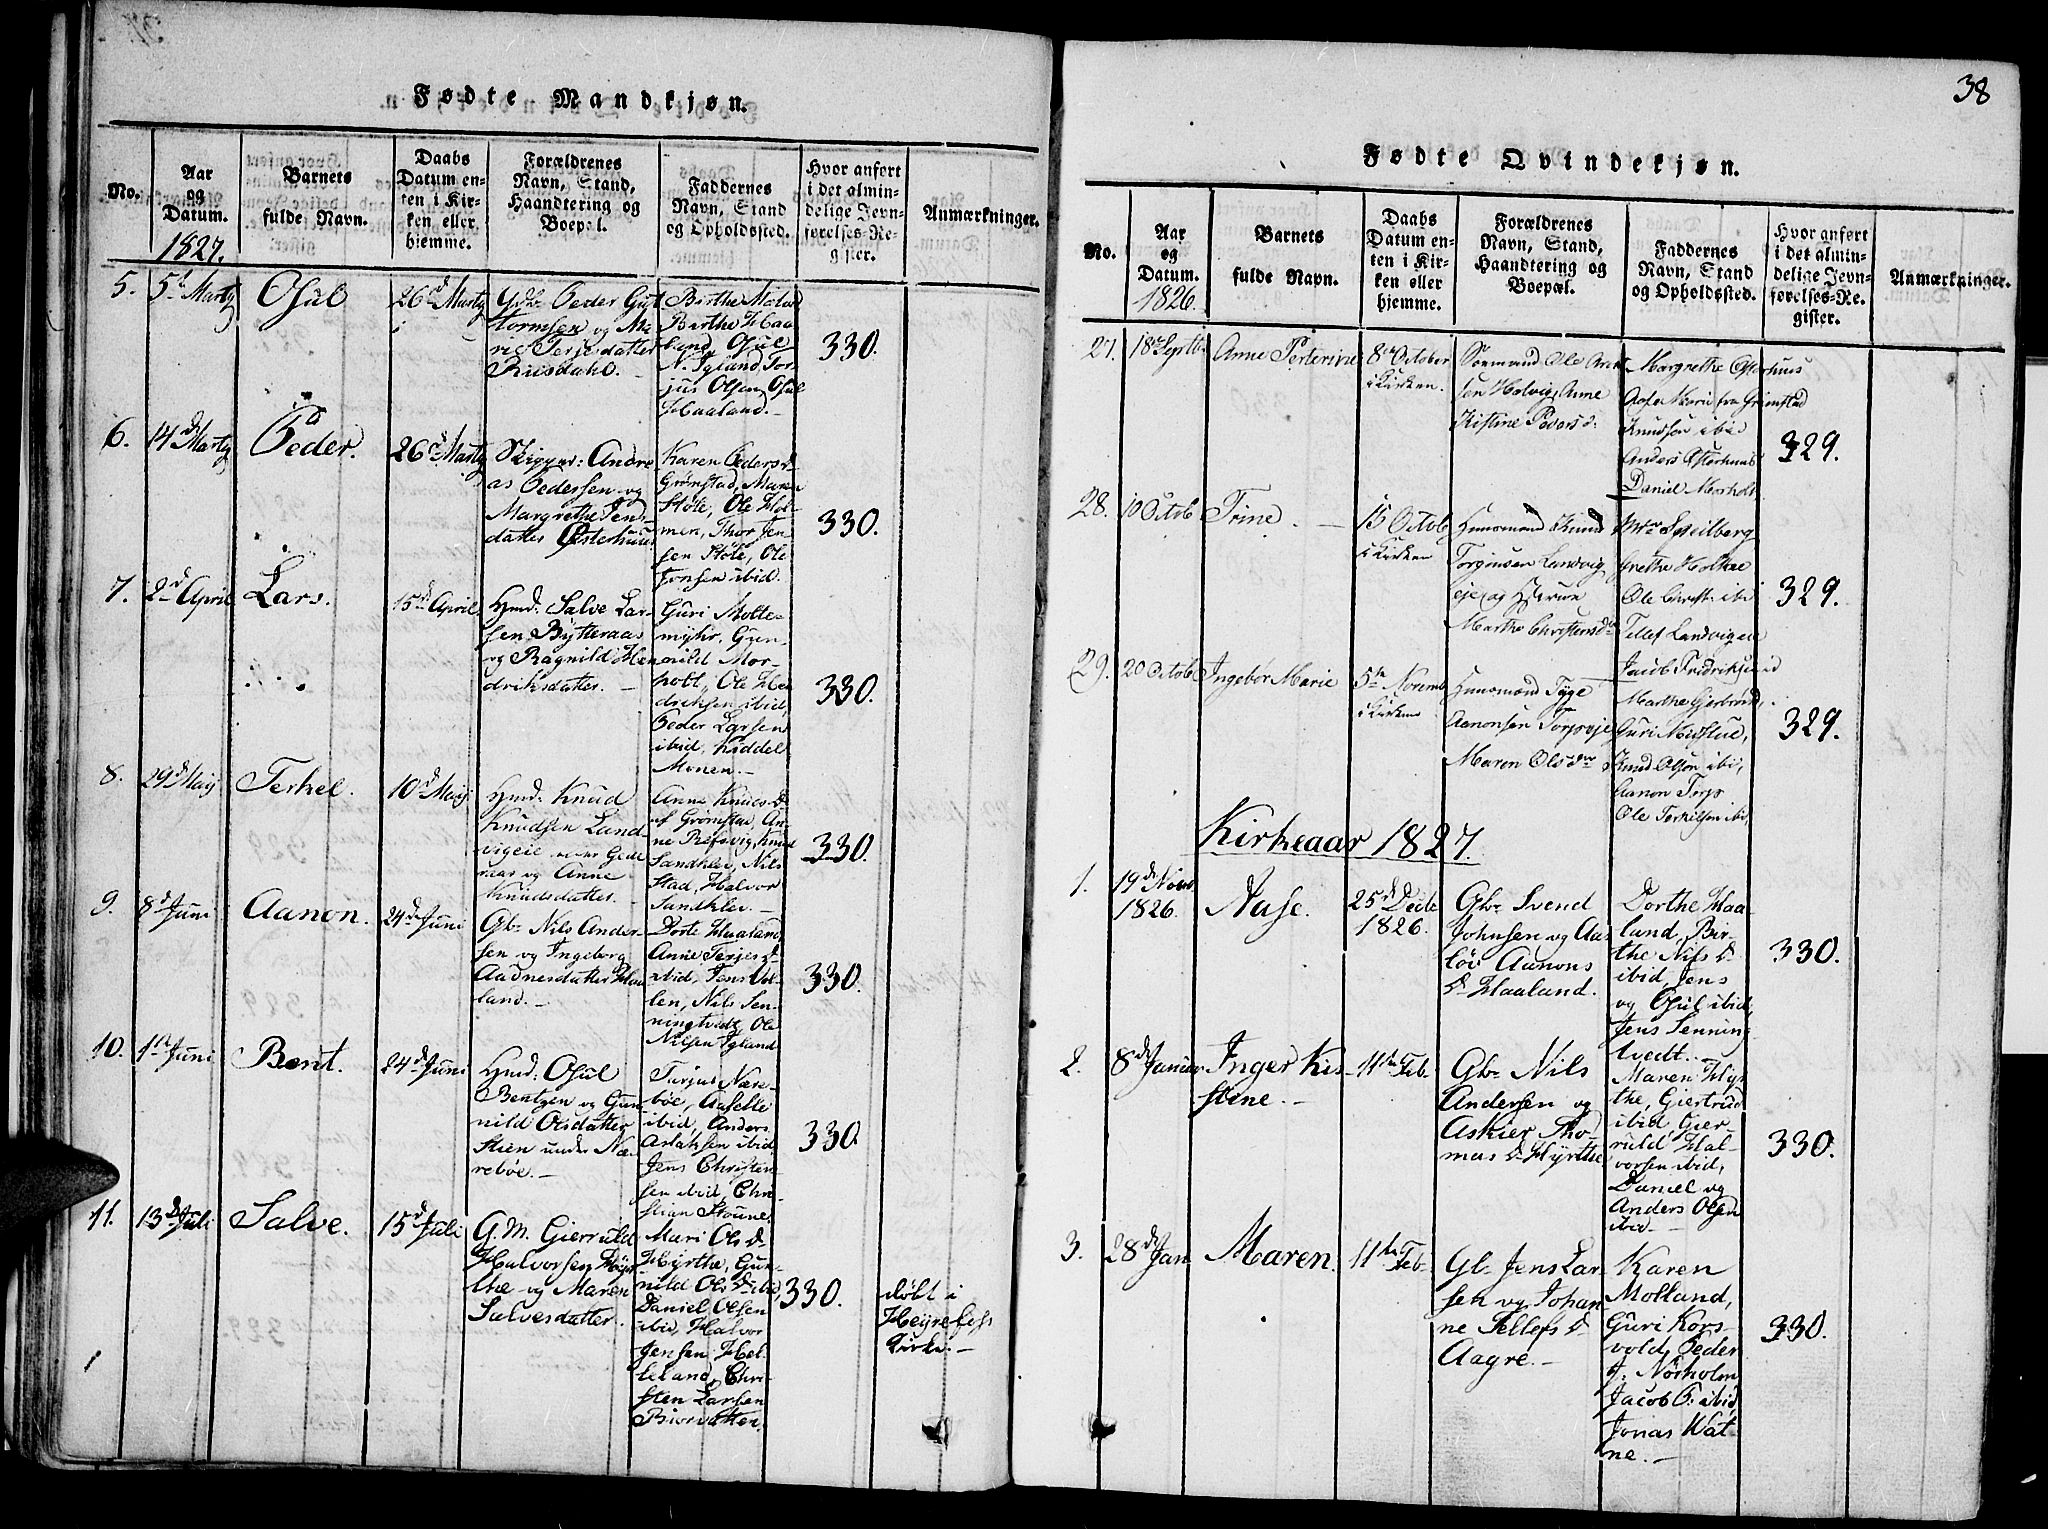 Fødte Mandkjøn.
No.
Aar og Datum.
1827.
Barnets fulde Navn.
Daabs Datum enten i Kirken eller hjemme.
Forældrenes Navn, Stand, Haandtering og Boepæl.
Faddernes Navn, Stand og Opholdssted.
Hvor anført i det almindelige Jevnførelses-Register.
Anmærkninger.
5.
5te Marty
Osul
26d Marty
Gdbr Peder Gut
tormsen og Ma
rie Terjesdatter
Riisdahl.
Birthe
Birthe Haa
land, Osul
N. Igland, Tor
jus Olsen, Osul
Haaland.
330.
6.
14d Marty
Peder.
26d Marty
Skipper: Andre
as Pedersen og
Margrethe Jens
datter Østerhuus
Karen Peders D.
Grømstad, Maren
Støle, Ole Hol
men, Thor Jen
sen Støle, Ole
Jonsen ibid.
330.
7.
2d April
Lars.
15d April
Hmd: Salve Lar
sen Bytteraas
og Ragnild Hen
driksdatter.
Guri Molte
myhr, Gun
nild Mor
holt, Ole Hen
driksen ibid,
Peder Larsen
ibid, Kiddel
Monen.
330.
8.
29d Maij
Terkel.
10d Maij
Hmd: Knud
Knudsen Land
vigeie under Gede
raas og Anne
Knudsdatter.
Anne Knuds D.
af Grømstad, An
ne Refsvig, Knud
Sandklev, Nils
Stad, Halvor
Sandklev.
330.
9.
8d Juni
Aanon.
24d Juni
Gbr Nils Ander
sen og Ingeborg
Aadnesdatter Haa
land.
Dorte Haaland
Anne Terjes D.
ibid, Jens Ol
sen, Nils Sen
ningtvedt, Ole
Nilsen Igland
330.
10.
1st Juni
Bent.
24d Juni
Hmd: Osul
Bentzen og Gun
nild Olsdatter
Stien under Næ
rebøe.
Torjus Nære
bøe, Aaselle
ibid, Anders
Aslaksen ibid
Jens Christen
sen ibid, Chri
stian Stoune.
330.
11.
13d Juli
Salve.
15d Juli
G. M. Gierruld
Halvorsen Hyr
the og Maren
Salvesdatter.
Mari Ols D.
Hyrthe, Gun
nild Ols D. ibid,
Daniel Olsen
ibid, Halvor
Jensen Hel
leland, Chri
sten Larsen
Biorvatten.
330.
døbt i
Heyrefoss
Kirke.
38
Fødte Qvindekjøn.
No.
Aar og Datum.
1826.
Barnets fulde Navn.
Daabs Datum enten i Kirken eller hjemme.
Forældrenes Navn, Stand, Haandtering og Boepæl.
Faddernes Navn, Stand og Opholdssted.
Hvor anført i det almindelige Jevnførelses-Register.
Anmærkninger.
27.
18de Septb
Anne Peterine
8de October
i Kirken.
Søemand Ole
sen Holvig, Anne
Kistine Peders D.
Margrethe Østerhuus
Aase Marie fra Grimstad
Knudsen ibid
Anders Østerhuus
Daniel Morholt
329.
28.
10 Octob
Trine.
15 Octob
i Kirken
Huusmand Knud
Torgersen Landvig
eje og Hustrue
Marthe Christens Dr
Mrs Speilberg
Grethe Holthe
Ole Christ. ibi
Tellef Landvigeie
Jacob Fredriksen ibid
329.
29.
20 Octob
Ingebør Marie
5te Novemb
i Kirken
Huusmand Tyge
Aanonsen Torpseje
Maren Ols Dr
Marthe Gjerbrønd,
Guri
Knud Olsen ibi,
Aanon Torp
Ole Terkilsen ibi,
329.
Kirkeaar 1827.
1.
19d Nov
1826.
Aase.
25d Decbr
1826.
Gbr Svend
Johnsen og Aas
løv Aanons
D. Haaland.
Dorthe Haa
land, Bir
the Nils D.
ibid, Jens
og Osul ibid,
Jens Senning
tvedt.
330.
2.
8d Januar
Inger Kis
stine.
11te Feb
Gbr Nils
Andersen og
Askier Tho
mas D. Hyrthe
Maren Hyr
the, Giertrud
ibid, Gier
ruld Hal
vorsen ibid,
Daniel og
Anders Olsen
ibid
330.
3.
28d Jan
Maren.
11te Feb
Gbr Jens Lar
sen og Johan
ne Tellefs D.
Aagre.
Karen
Molland,
Guri Kors
vold, Peder
J. Nörholm
Jacob F. ibid
Jonas Wat
ne.
330.